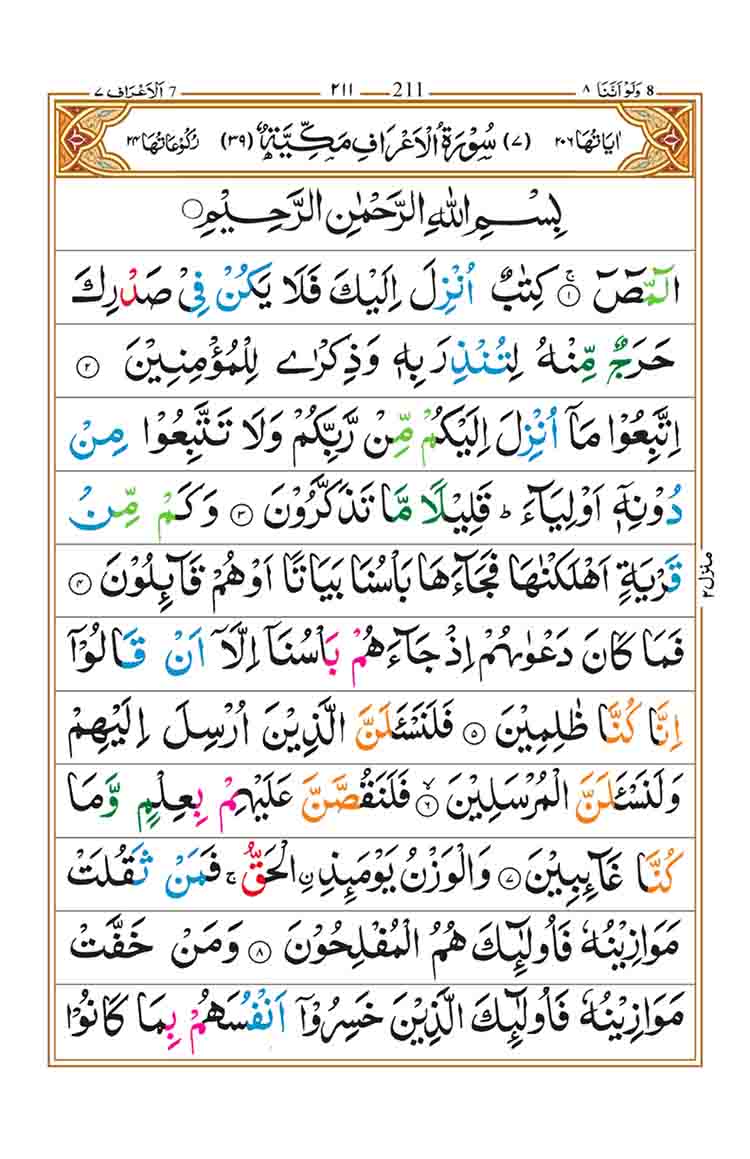 8 وَلَوْ اَنَّنَا ۸ 211 ۲۱۱ 7 اَلْاَعْرَاف ۷
اٰیَاتُهَا ۲۰۶ (۷) سُوْرَةُ الْاَعْرَافِ مَكِّیَّةٌ (۳۹) رُكُوْعَاتُهَا ۲۴
بِسْمِ اللّٰهِ الرَّحْمٰنِ الرَّحِیْمِ
الٓمّٓصٓ ۚ‏ ۱ كِتٰبٌ اُنْزِلَ اِلَیْكَ فَلَا یَكُنْ فِیْ صَدْرِكَ
حَرَجٌ مِّنْهُ لِتُنْذِرَ بِهٖ وَذِكْرٰی لِلْمُؤْمِنِیْنَ ۲
اِتَّبِعُوْا مَاۤ اُنْزِلَ اِلَیْكُمْ مِّنْ رَّبِّكُمْ وَلَا تَتَّبِعُوْا مِنْ
دُوْنِهٖۤ اَوْلِیَآءَ ؕ قَلِیْلًا مَّا تَذَكَّرُوْنَ ۳ وَكَمْ مِّنْ
قَرْیَةٍ اَهْلَكْنٰهَا فَجَآءَهَا بَاْسُنَا بَیَاتًا اَوْهُمْ قَآئِلُوْنَ ۴
منزل ۲
فَمَا كَانَ دَعْوٰىهُمْ اِذْ جَآءَهُمْ بَاْسُنَاۤ اِلَّاۤ اَنْ قَالُوْۤا
اِنَّا كُنَّا ظٰلِمِیْنَ ۵ فَلَنَسْـَٔلَنَّ الَّذِیْنَ اُرْسِلَ اِلَیْهِمْ
وَلَنَسْـَٔلَنَّ الْمُرْسَلِیْنَ ۙ ۶ فَلَنَقُصَّنَّ عَلَیْهِمْ بِعِلْمٍ وَّمَا
كُنَّا غَآئِبِیْنَ ۷ وَالْوَزْنُ یَوْمَئِذِ نِ الْحَقُّ ۚ فَمَنْ ثَقُلَتْ
مَوَازِیْنُهٗ فَاُولٰٓئِكَ هُمُ الْمُفْلِحُوْنَ ۸ وَمَنْ خَفَّتْ
مَوَازِیْنُهٗ فَاُولٰٓئِكَ الَّذِیْنَ خَسِرُوْۤا اَنْفُسَهُمْ بِمَا كَانُوْا